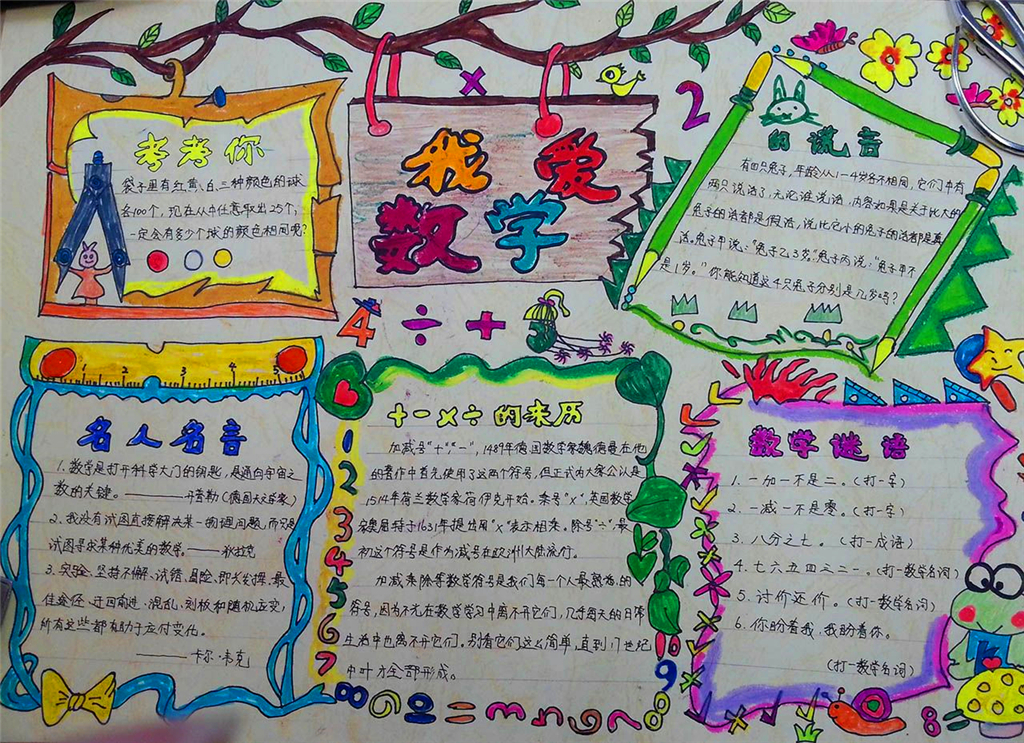 考考你
袋子里有红、黄、白、三种颜色的球
各100个,现在从中任意取出25个,
一定会有多少个球的颜色相同呢?
我爱
数学
2
4 ÷ +
的谎言
有四只兔子,年龄从1—4岁各不相同,它们中有
两只说话了,无论谁说话,内容如果是关于比大的
兔子的话都是假话,说比它小的兔子的话都是真
话。兔子甲说:"兔子乙3岁。"兔子丙说:"兔子甲不
是1岁。"你能知道这4只兔子分别是几岁吗?
1 2 3 4 5
名人名言
1、数学是打开科学大门的钥匙,是通向宇宙之
数的关键。————
(德国大学家)
2、我没有试图直接解决某一物理问题,而只是
试图寻求某种优美的数学。——狄拉克
3、实验、坚持不懈、试错、冒险、即兴发挥、最
佳途径、迂回前进、混乱、刻板和随机应变,
所有这些都有助于应付变化。
——卡尔·韦克
+-×÷的来历
加减号"+","-",1489年德国数学家魏德曼在他
的著作中首先使用了这两个符号,但正式为大家公认是
1514年荷兰数学家荷伊克开始。乘号"×",英国数学
家奥屈特于1631年提出用"×"表示相乘。除号"÷",最
初这个符号是作为减号在欧洲大陆流行。
加减乘除等数学符号是我们每一个人最熟悉的
符号,因为不光在数学学习中离不开它们,几乎每天的日常
生活中也离不开它们。别看它们这么简单,直到17世纪
中叶才全部形成。
1
2
3
4
5
6
7
8
9
10
数学谜语
1. 一加一不是二。(打一字)
2. 一减一不是零。(打一字)
3. 八分之七。(打一成语)
4. 七六五四三二一。(打一数学名词)
5. 讨价还价。(打一数学名词)
6. 你盼着我,我盼着你。
(打一数学名词)
8 =